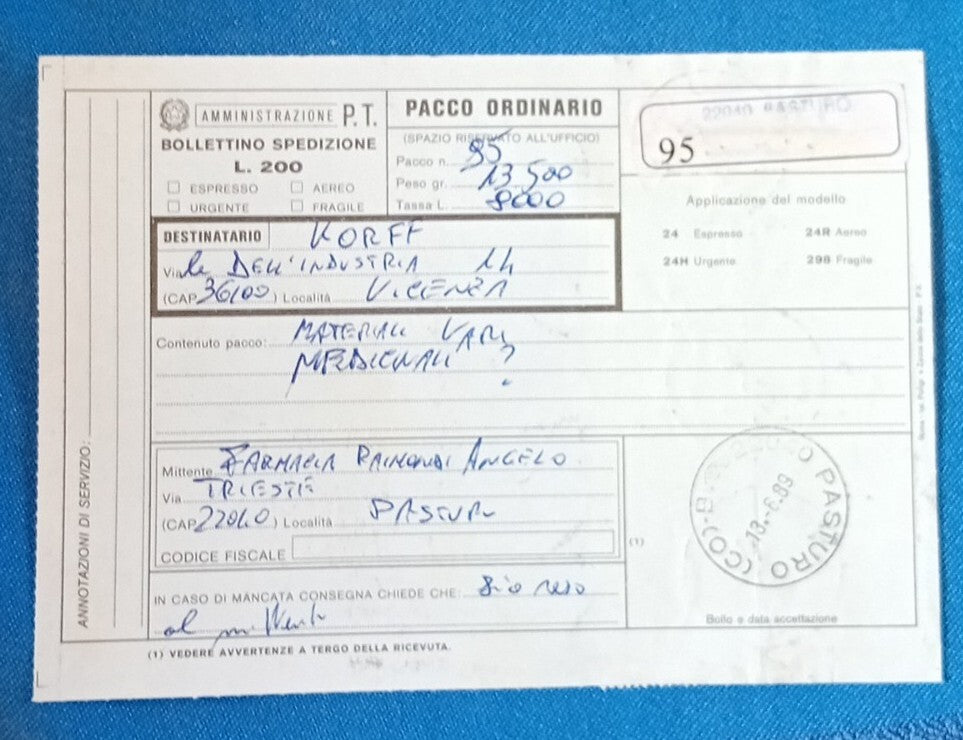 AMMINISTRAZIONE P.T.
BOLLETTINO SPEDIZIONE
L. 200
ESPRESSO AEREO
URGENTE FRAGILE
PACCO ORDINARIO
(SPAZIO RISERVATO ALL'UFFICIO)
Pacco n. 95
Peso gr. 13 500
Tassa L. 8000
22040 PASTURO
95
Applicazione del modello
24 Espresso 24R Aereo
24H Urgente 298 Fragile
DESTINATARIO KORFF
Via le DELL'INDUSTRIA 14
(CAP 36100) Località VICENZA
Contenuto pacco: MATERIALI VARI
MEDICINALI ?
Mittente FARMACIA RAIMONDI ANGELO
Via TRIESTE
(CAP 22040) Località PASTURO
CODICE FISCALE
(1)
IN CASO DI MANCATA CONSEGNA CHIEDE CHE: Sia reso
al mittente
PASTURO (CO)
13.-6.89
Bollo e data accettazione
(1) VEDERE AVVERTENZE A TERGO DELLA RICEVUTA.
ANNOTAZIONI DI SERVIZIO: